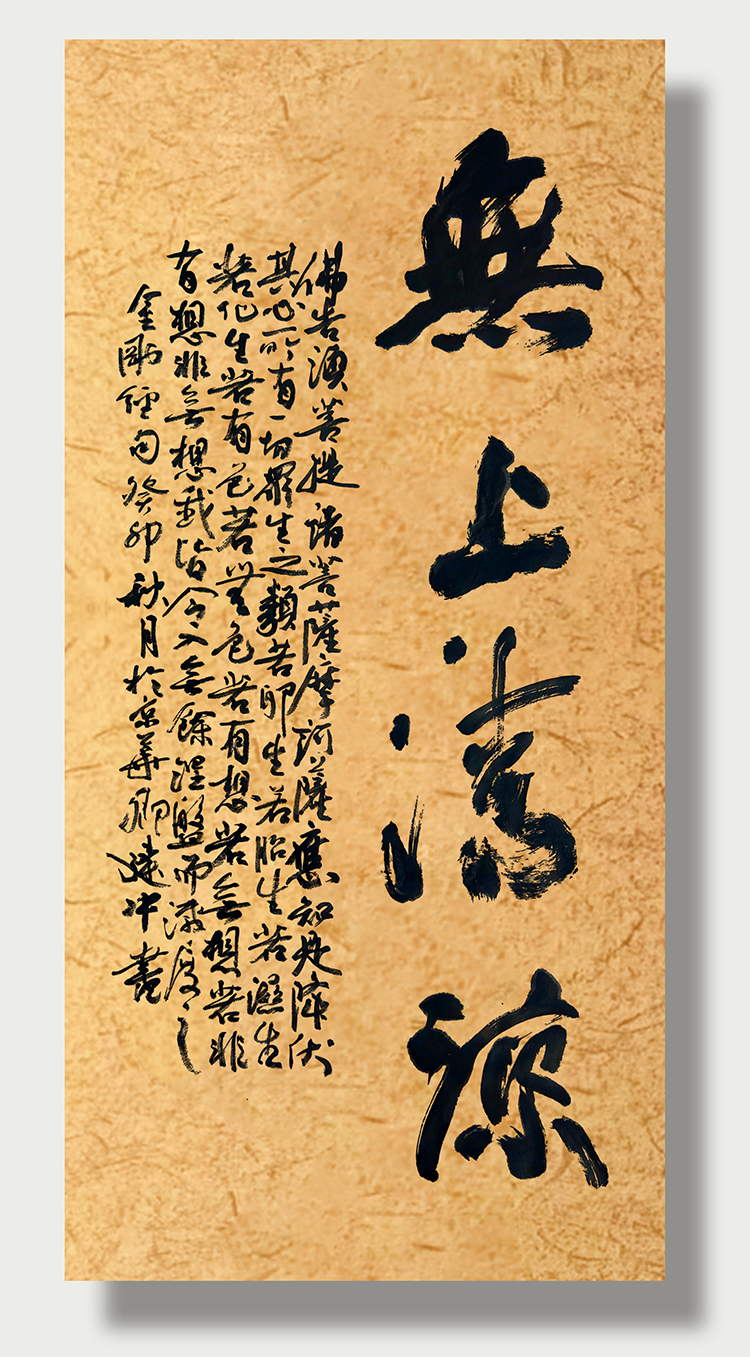 無上清涼
佛告須菩提諸菩薩摩訶薩應如是降伏
其心所有一切眾生之類若卵生若胎生若濕生
若化生若有色若無色若有想若無想若非
有想非無想我皆令入無餘涅盤而滅度之
金剛經句癸卯秋月於京華卿建中書